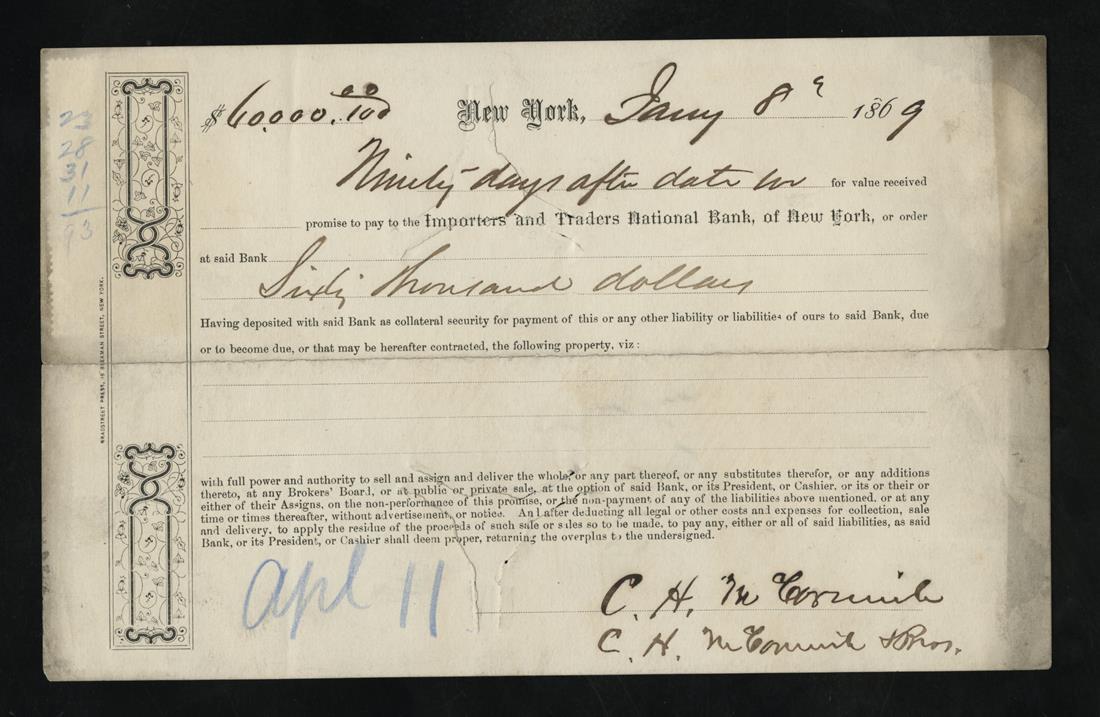 $60,000.00/100 New York, Jany 8th 1869
Ninety days after date we for value received
promise to pay to the Importers and Traders National Bank, of New York, or order
at said Bank
Sixty thousand dollars
Having deposited with said Bank as collateral security for payment of this or any other liability or liabilities of ours to said Bank, due
or to become due, or that may be hereafter contracted, the following property, viz :
with full power and authority to sell and assign and deliver the whole, or any part thereof, or any substitutes therefor, or any additions
thereto, at any Brokers' Board, or at public or private sale, at the option of said Bank, or its President, or Cashier, or its or their or
either of their Assigns, on the non-performance of this promise, or the non-payment of any of the liabilities above mentioned, or at any
time or times thereafter, without advertisement or notice. And after deducting all legal or other costs and expenses for collection, sale
and delivery, to apply the residue of the proceeds of such sale or sales so to be made, to pay any, either or all of said liabilities, as said
Bank, or its President, or Cashier shall deem proper, returning the overplus to the undersigned.
Apl 11
C. H. McCormick
C. H. McCormick & Bros.
23
28
31
11
93
BRADSTREET PRESS, 18 BEEKMAN STREET, NEW YORK.